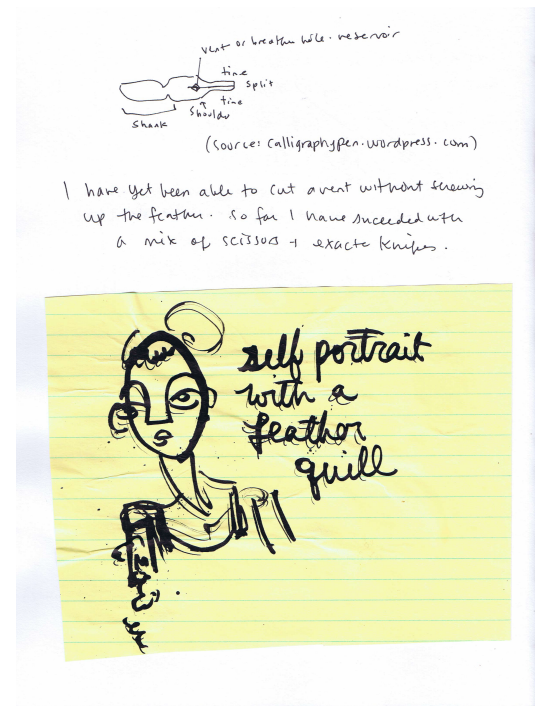 vent or breather hole. reservoir
tine
split
tine
shoulder
shank
(source: calligraphypen.wordpress.com)
I have yet been able to cut a vent without screwing
up the feather. So far I have succeeded with
a mix of scissors + exacto knifes.
self portrait
with a
feather
quill